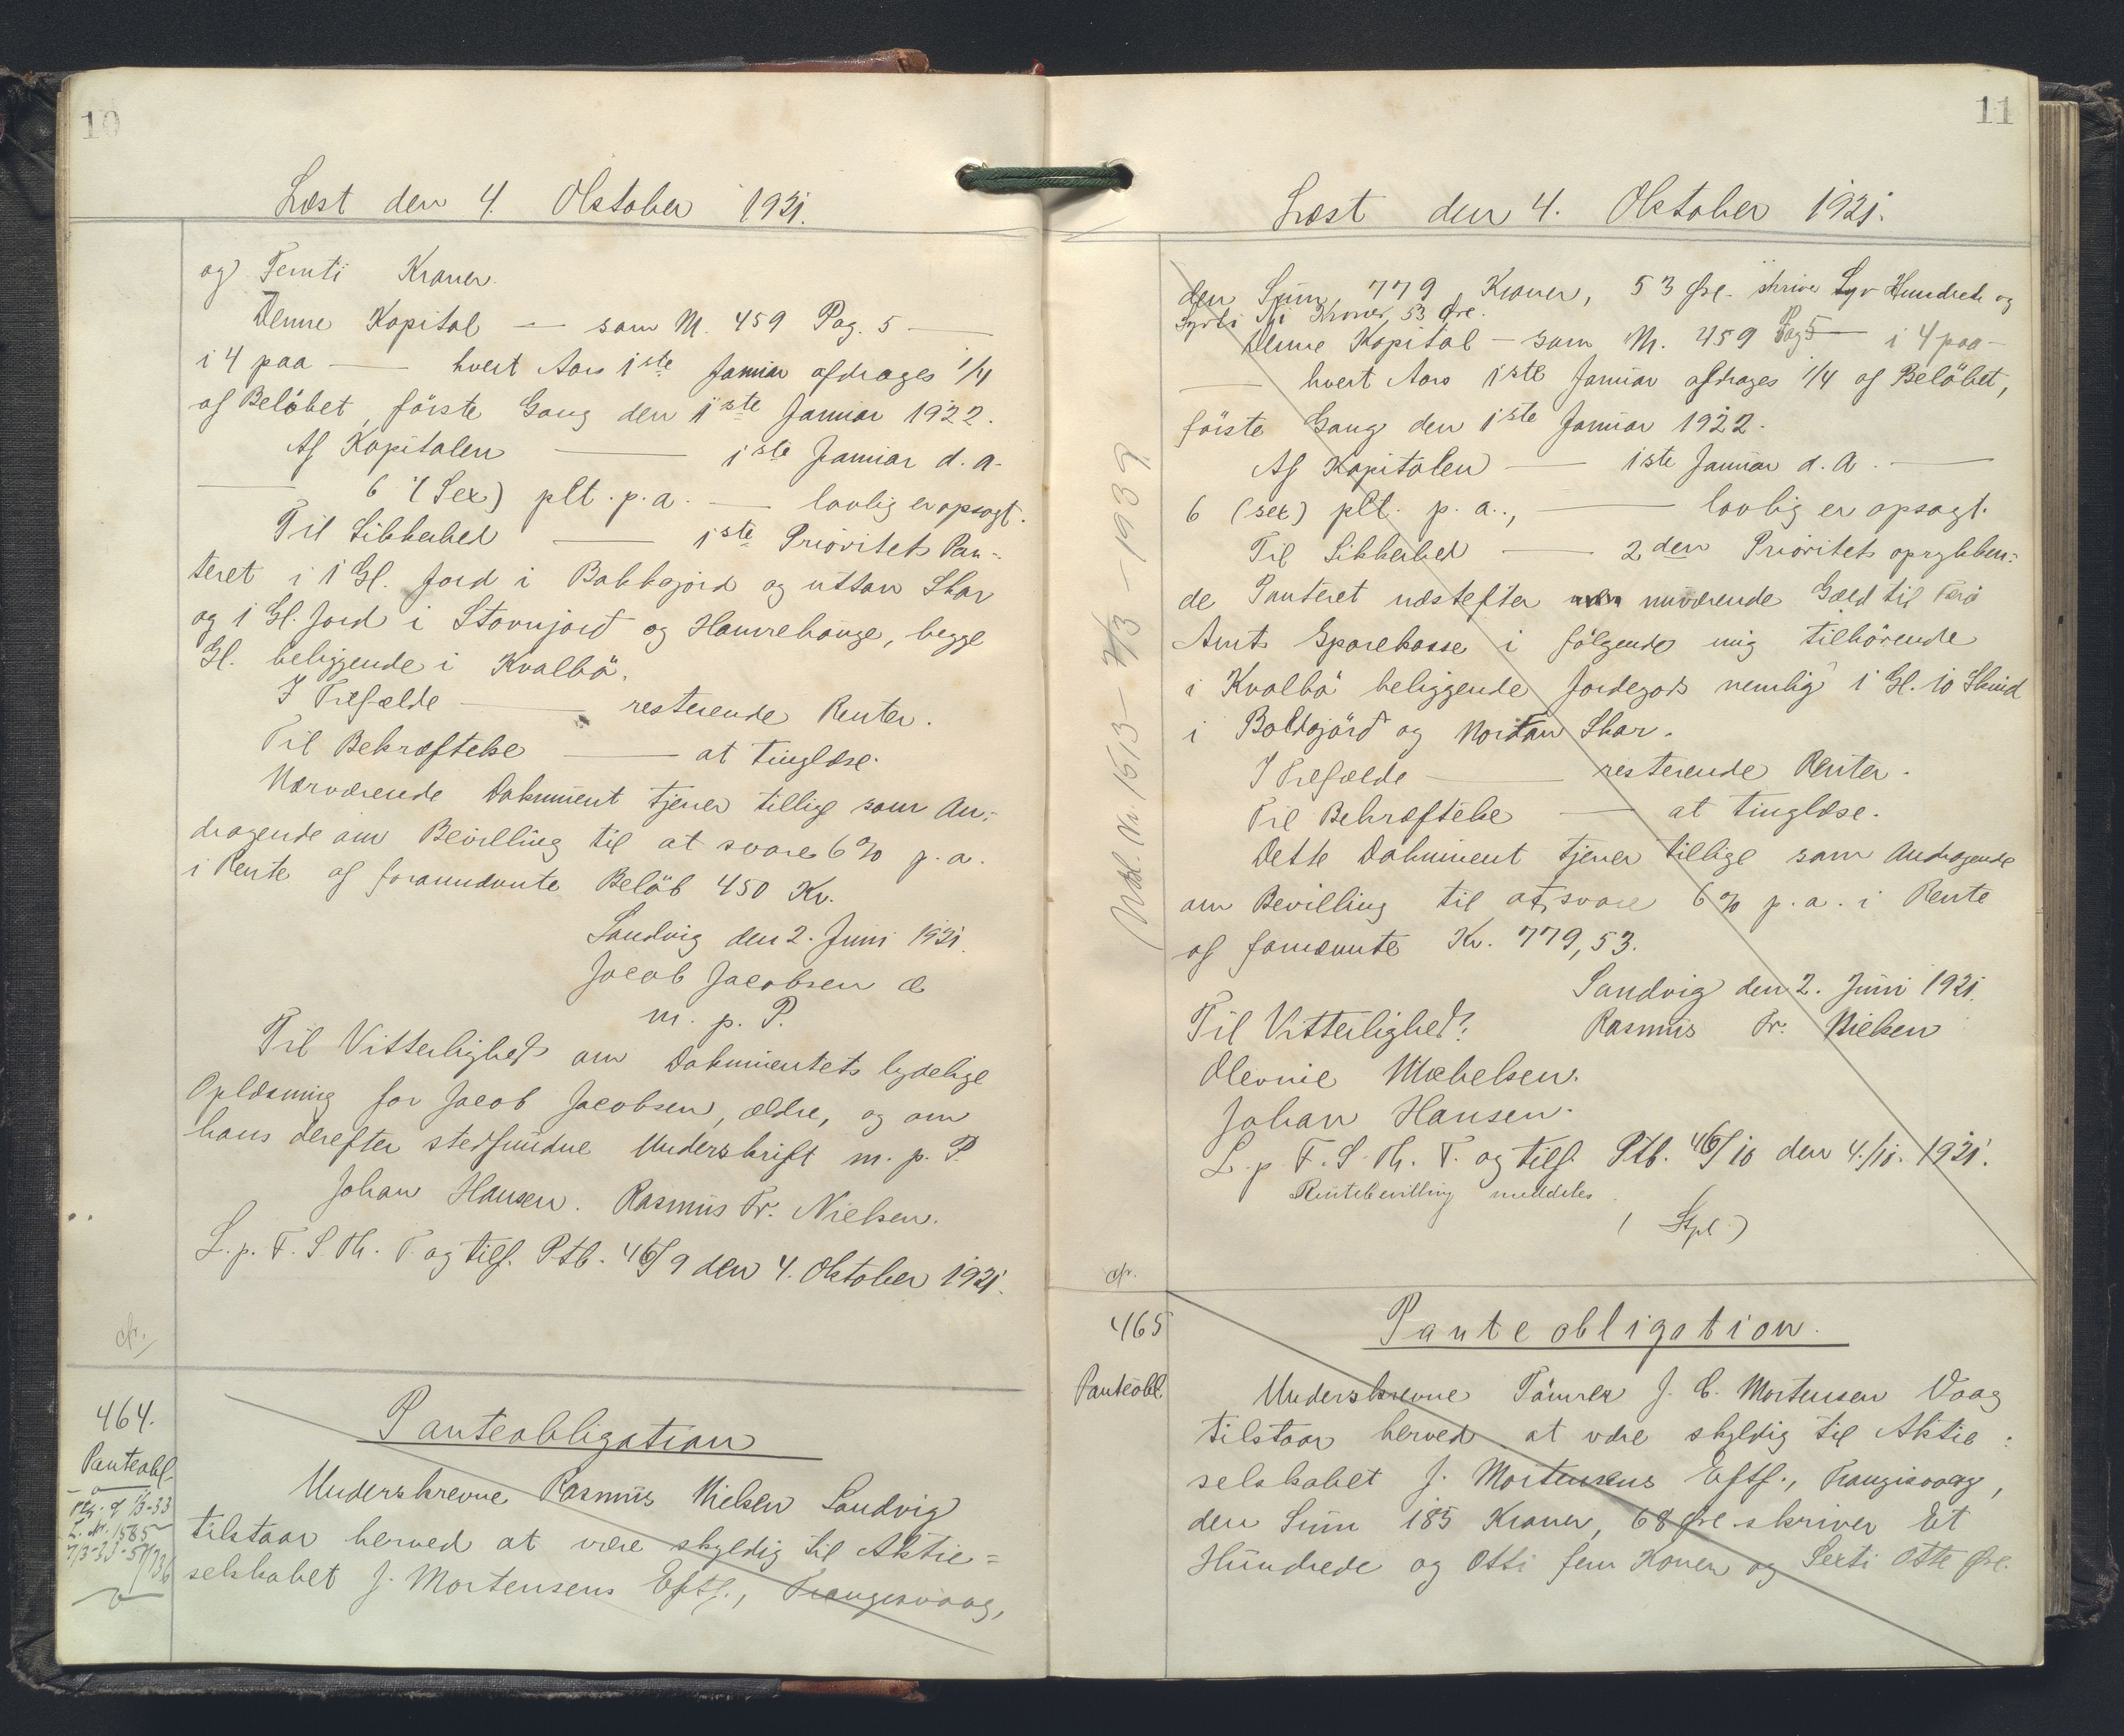 10
Læst den 4. Oktober 1921.
og Femti Kroner.
Denne Kapital — som N. 459 Pag. 5 —
i 4 paa — hvert Aars 1ste Januar afdrages 1/4
af Beløbet, første Gang den 1ste Januar 1922.
Af Kapitalen — 1ste Januar d. A.
— 6 (Sex) pCt. p. a. — lovlig er opsagt.
Til Sikkerhed — 1ste Prioritets Pan-
teret i 1 Gl. Jord i Bakkagjørd og uttan Skar
og 1 Gl. Jord i Stovnjørd og Hamrehauge, begge
Gl. beliggende i Kvalbø.
I Tilfælde — resterende Renter.
Til Bekræftelse — at tinglæse.
Nærværende Dokument tjener tillige som An-
dragende om Bevilling til at svare 6% p. a.
i Rente af forannævnte Beløb 450 Kr.
Sandvig den 2. Juni 1921.
Jacob Jacobsen æ
m. p. P.
Til Vitterlighed om Dokumentets lydelige
Oplæsning for Jacob Jacobsen, ældre, og om
hans derefter stedfundne Underskrift m. p. P.
Johan Hansen. Rasmus Fr. Nielsen.
L. p. F. S. Th. T. og tilf. Ptb. 46/9 den 4. Oktober 1921.
cfr.
464.
Panteobl.
L. Nr. 1585
Panteobligation
Underskrevne Rasmus Nielsen Sandvig
tilstaar herved at være skyldig til Aktie=
selskabet J. Mortensens Eftf., Trangisvaag,
11
Læst den 4. Oktober 1921.
den Sum 779 Kroner, 53 Øre skriver Syv Hundrede og
Syvti Ni Kroner, 53 Øre.
Denne Kapital — som N. 459 Pag 5 — i 4 paa —
— hvert Aars 1ste Januar afdrages 1/4 af Beløbet,
første Gang den 1ste Januar 1922.
Af Kapitalen — 1ste Januar d. A. —
6 (sex) pCt. p. a., — lovlig er opsagt.
Til Sikkerhed — 2den Prioritets oprykken=
de Panteret næstefter nuværende Gæld til Færø
Amts Sparekasse i følgende mig tilhørende
i Kvalbø beliggende Jordegods nemlig 1 Gl. 10 Skind
i Bakkagjørd og Nordan Skar.
I Tilfælde — resterende Renter.
Til Bekræftelse — at tinglæse.
Dette Dokument tjener tillige som Andragende
om Bevilling til at svare 6% p. a. i Rente
af fornævnte Kr. 779,53.
Sandvig den 2. Juni 1921.
Til Vitterlighed: Rasmus Fr. Nielsen
Olevine Mikkelsen.
Johan Hansen.
L. p. F. S. Th. T. og tilf. Ptb. 46/10 den 4./10. 1921.
Rentebevilling meddeles.
(Stpl.)
Udsl. Nr. 1513 - 7/3 - 1939
cfr.
465
Panteobl.
Panteobligation.
Underskrevne Tømrer J. C. Mortensen Vaag
tilstaar herved at være skyldig til Aktie=
selskabet J. Mortensens Eftf., Trangisvaag,
den Sum 185 Kroner, 68 Øre skriver Et
Hundrede og Otti fem Kroner og Sexti Otte Øre.